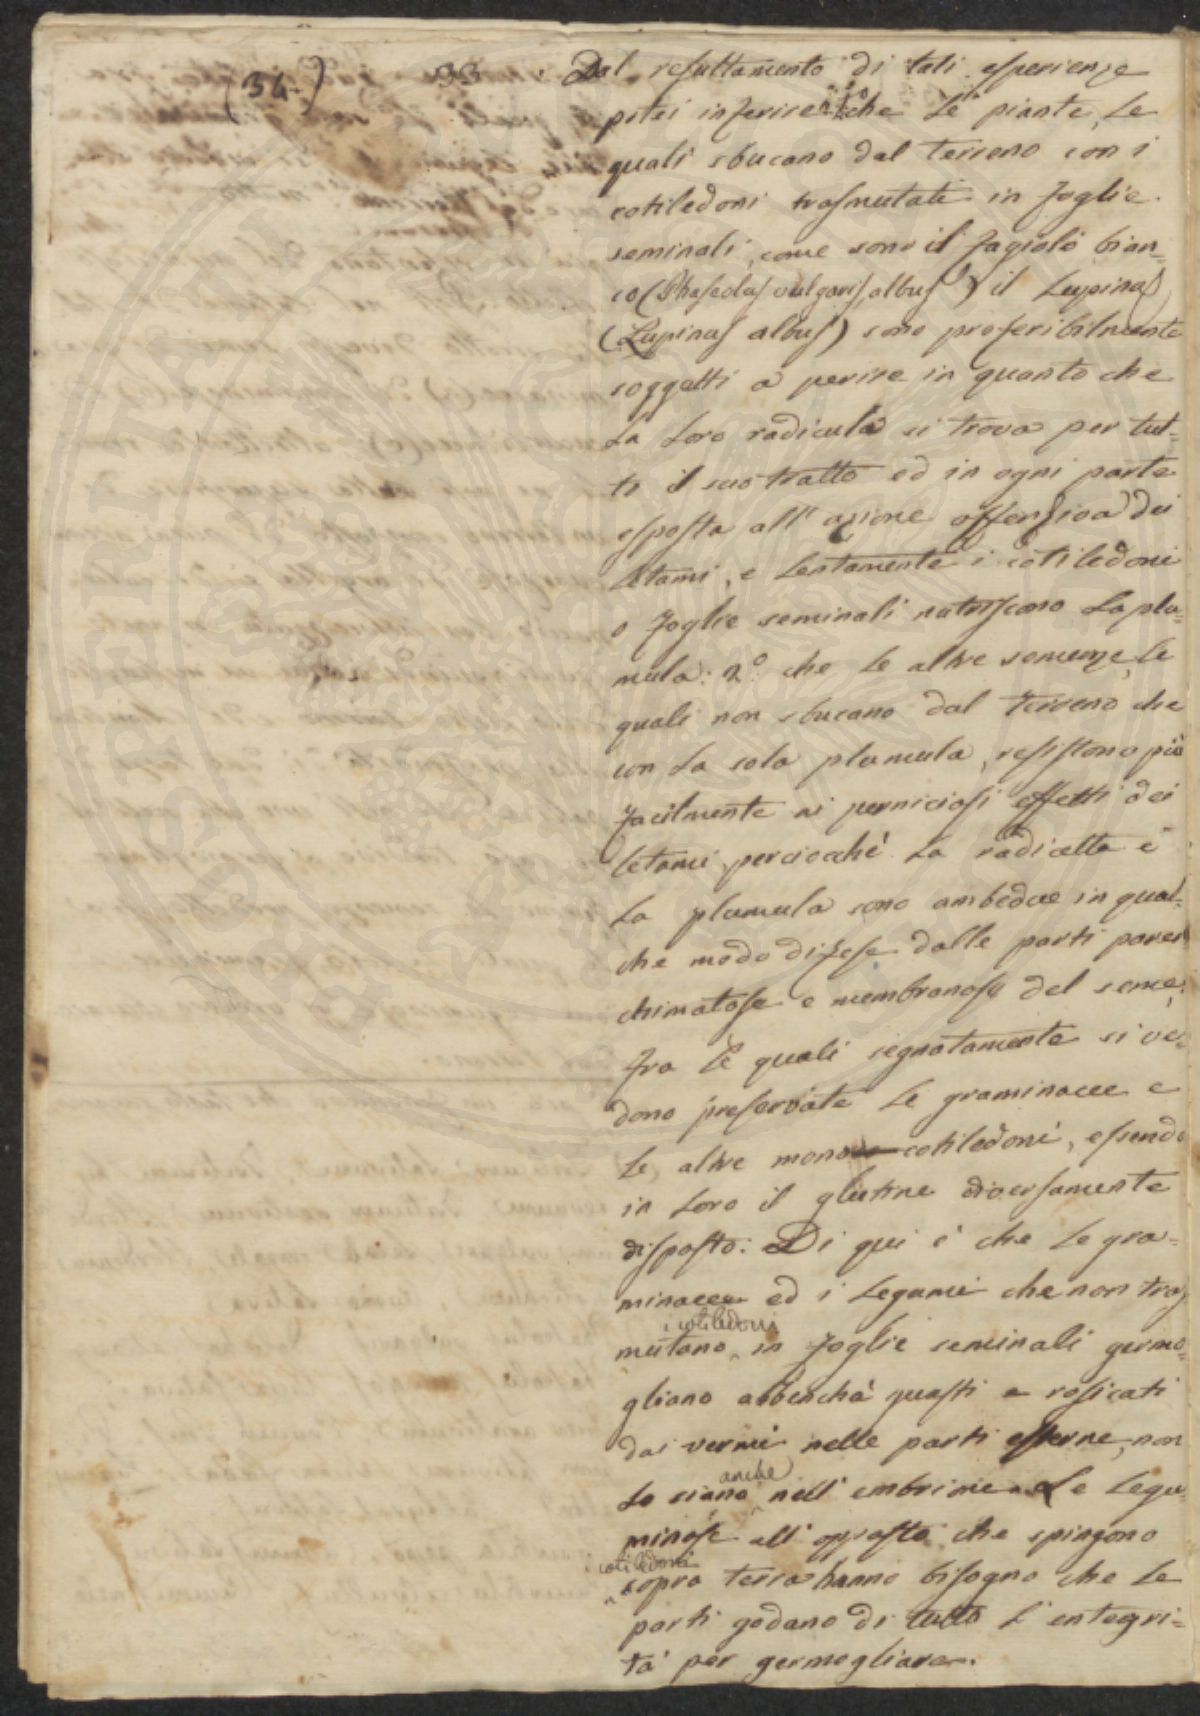 (34.) 33. Dal resultamento di tali esperienze
potei inferire 1° che le piante, le
quali sbucano dal terreno con i
cotiledoni trasmutati in foglie
seminali, come sono il fagiolo bian=
co (Phaseolus vulgaris, albus) il Lupino
(Lupinus albus) sono preferibilmente
soggetti a perire in quanto che
la loro radicula si trova per tut=
to il suo tratto ed in ogni parte
esposta all' azione offensiva dei
letami, e lentamente i cotiledoni
o foglie seminali nutriscono la plu=
mula: 2° che le altre semenze, le
quali non sbucano dal terreno che
con la sola plumula, resistono più
facilmente ai perniciosi effetti dei
letami, perciocché la radicetta e
la plumula sono ambedue in qual=
che modo difese dalle parti paren
chimatose e membranose del seme;
fra le quali segnatamente si ve=
dono preservate le graminacee e
le altre monocotiledoni, essendo
in loro il glutine diversamente
disposto. Di qui è che le gra=
minacee ed i legumi che non tras
mutano i cotiledoni in foglie seminali germo=
gliano abbenché guasti e rosicati
dai vermi nelle parti esterne, non
lo siano anche nell' embrione. Le legu=
minose all' opposto che spingono
cotiledoni sopra terra hanno bisogno che le
parti godano di tutta l' integri=
tà per germogliare.